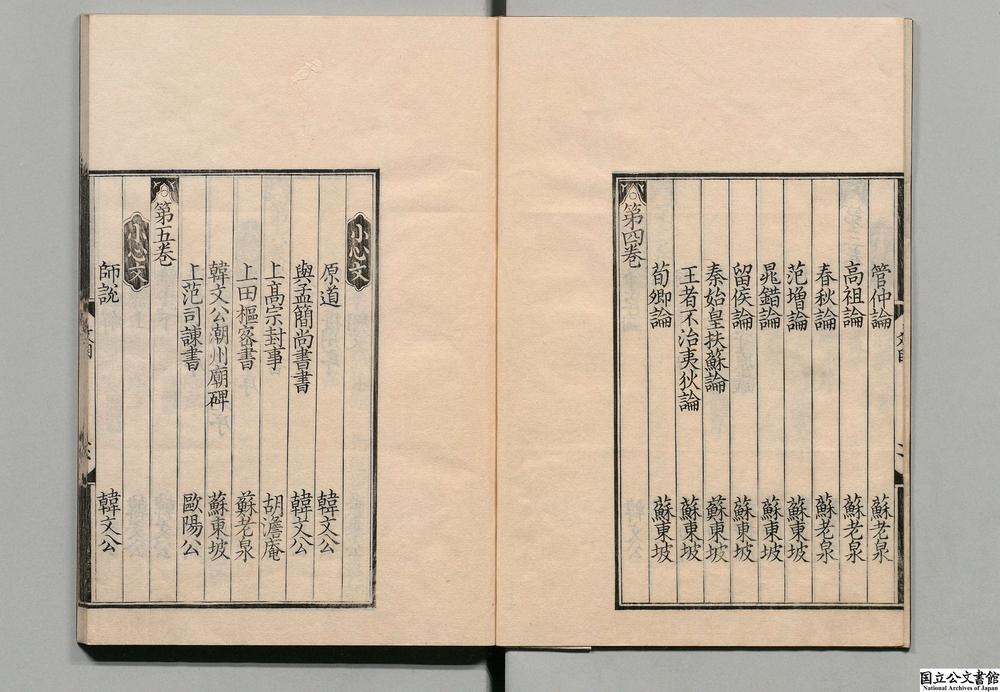 管仲論 蘇老泉
高祖論 蘇老泉
春秋論 蘇老泉
范増論 蘇東坡
鼂錯論 蘇東坡
留侯論 蘇東坡
秦始皇扶蘇論 蘇東坡
王者不治夷狄論 蘇東坡
荀卿論 蘇東坡
第四卷
小心文
原道 韓文公
與孟簡尚書書 韓文公
上高宗封事 胡澹庵
上田樞密書 蘇老泉
韓文公潮州廟碑 蘇東坡
上范司諫書 歐陽公
第五卷
小心文
師說 韓文公
国立公文書館
National Archives of Japan